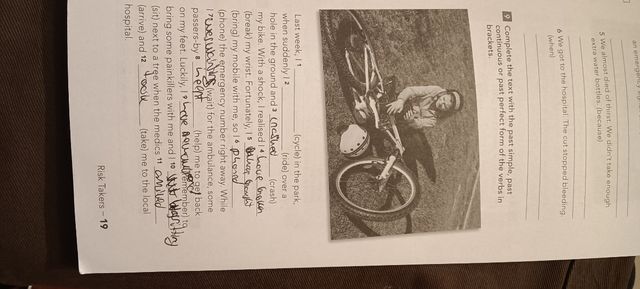 an emergency
5 We almost died of thirst. We didn't take enough
extra water bottles. (because)
6 We got to the hospital. The cut stopped bleeding.
(when)
9 Complete the text with the past simple, past
continuous or past perfect form of the verbs in
brackets.
Last week, I 1 (cycle) in the park,
when suddenly I 2 (ride) over a
hole in the ground and 3 crashed (crash)
my bike. With a shock, I realised I 4 have broken
(break) my wrist. Fortunately, I 5 brought
(bring) my mobile with me, so I 6 phoned
(phone) the emergency number right away. While
I 7 was waiting (wait) for the ambulance, some
passers-by 8 helpt (help) me to get back
on my feet. Luckily, I 9 have (remember) to
bring some painkillers with me and I 10
(sit) next to a tree when the medics 11 arrived
(arrive) and 12 took (take) me to the local
hospital.
Risk Takers – 19